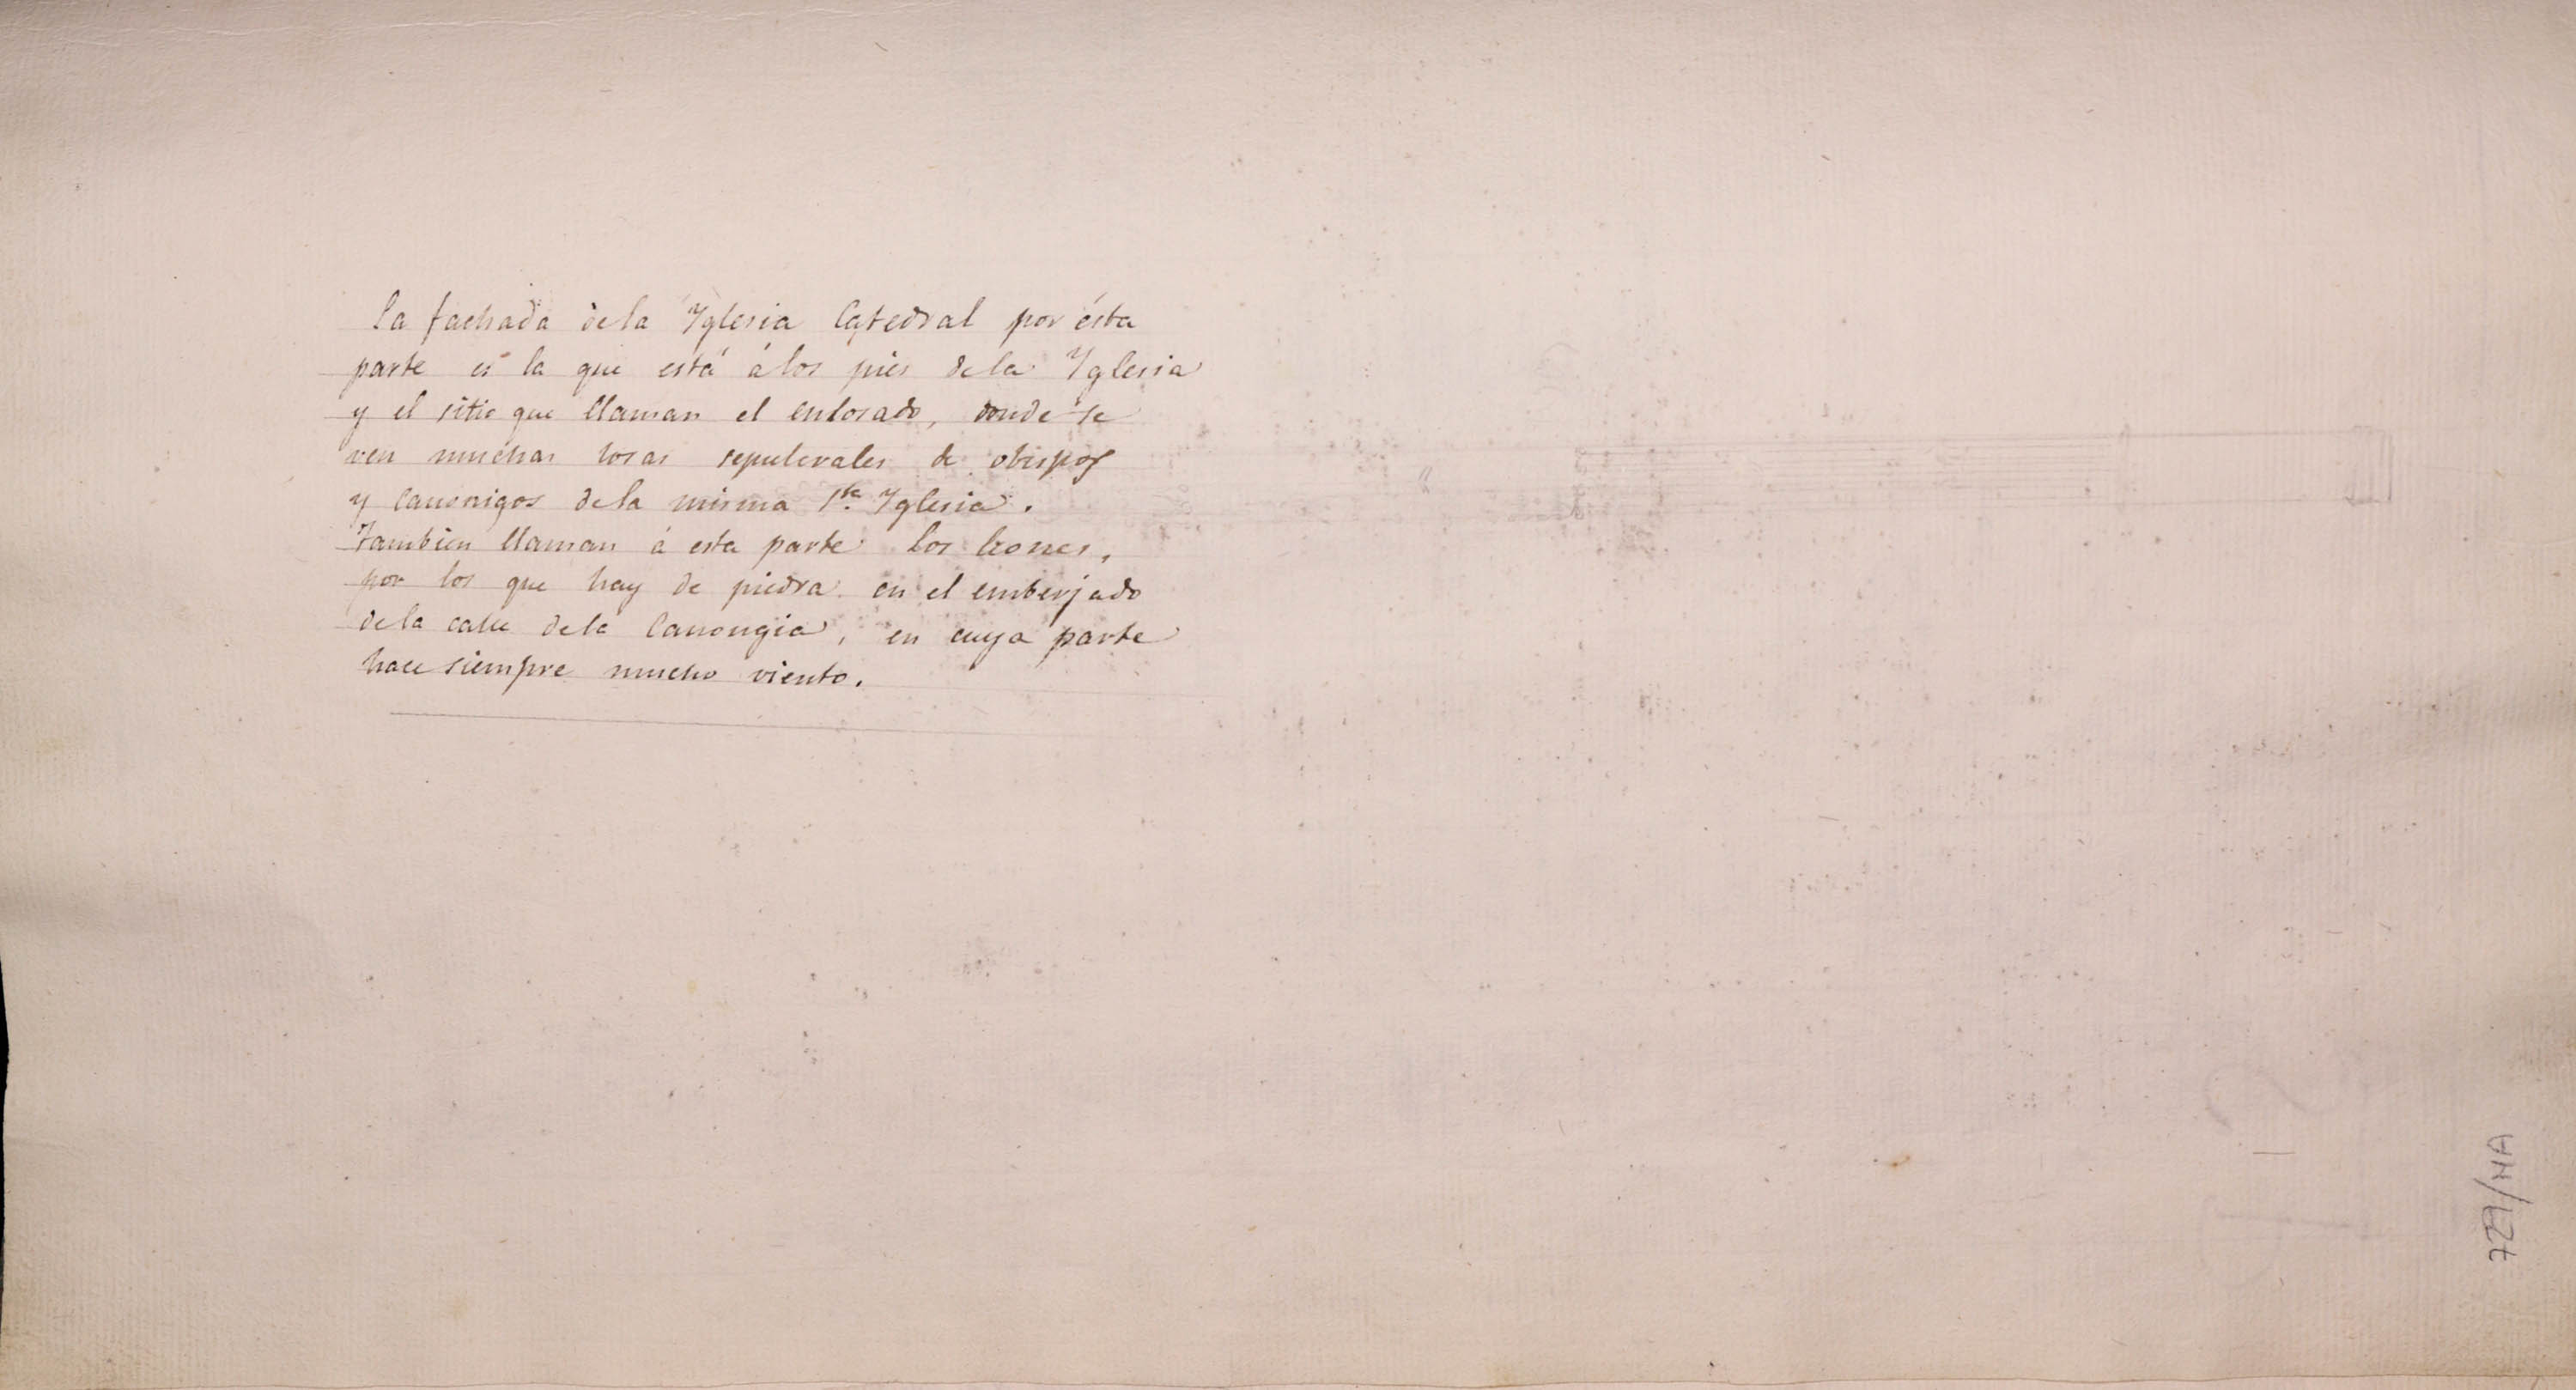 La fachada de la Yglesia Catedral por ésta
parte es la que está á los pies de la Yglesia
y el sitio que llaman el enlosado, donde se
ven muchas losas sepulcrales de obispos
y Canonigos de la misma Sta. Yglesia.
Tambien llaman á esta parte los leones,
por los que hay de piedra en el emberjado
de la calle de la Canongia, en cuya parte
hace siempre mucho viento.